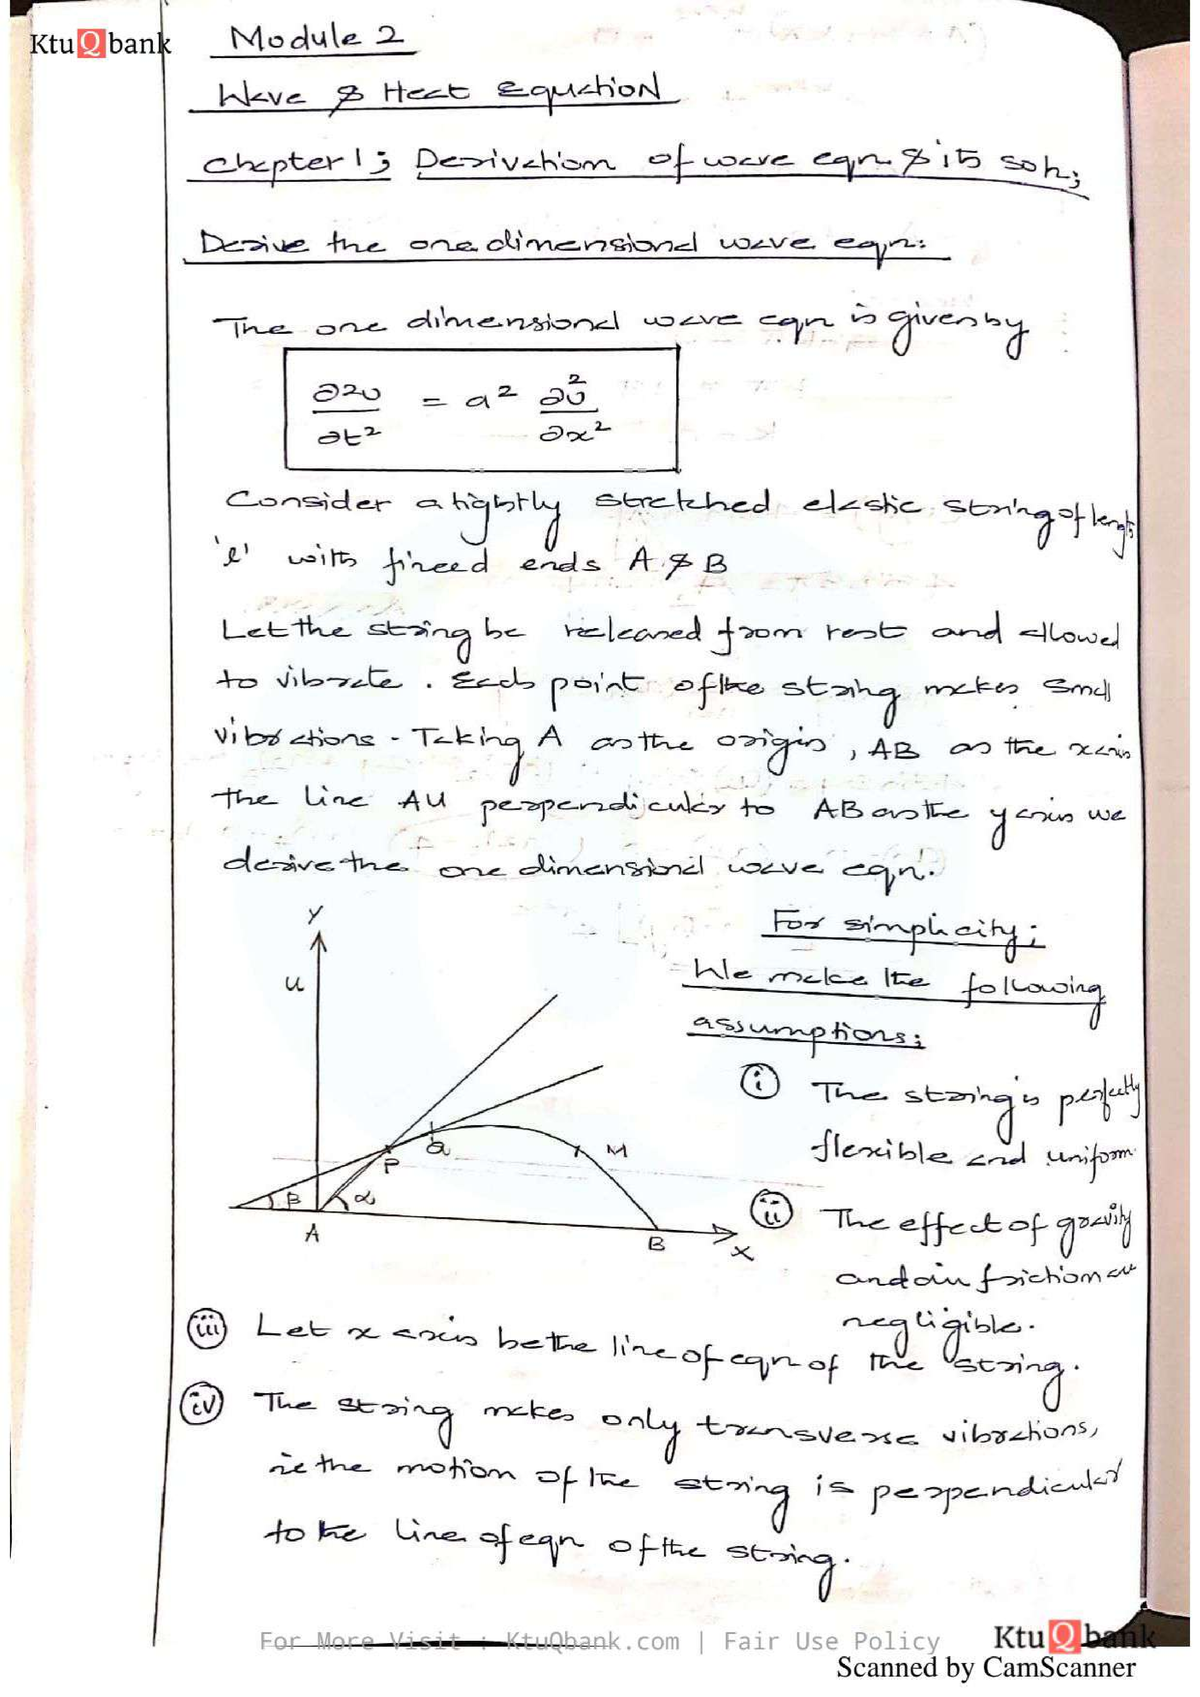 KtuQbank
Module 2
Wave & Heat Equation
Chapter 1; Derivation of wave eqn & its soln;
Derive the one dimensional wave eqn:
The one dimensional wave eqn is given by
∂2u/∂t² = a² ∂²u/∂x²
Consider a tightly stretched elastic string of length
'l' with fixed ends A & B
Let the string be released from rest and allowed
to vibrate. Each point of the string makes small
vibrations - Taking A as the origin, AB as the x axis
the line AU perpendicular to AB as the y axis we
derive the one dimensional wave eqn.
Y
U
For simplicity;
We make the following
assumptions;
(i) The string is perfectly
flexible and uniform
P
Q
M
β
α
A
B
X
(ii) The effect of gravity
and air friction are
negligible.
(iii) Let x axis be the line of eqn of the string.
(iv) The string makes only transverse vibrations,
ie the motion of the string is perpendicular
to the line of eqn of the string.
For More Visit : KtuQbank.com | Fair Use Policy
KtuQbank
Scanned by CamScanner